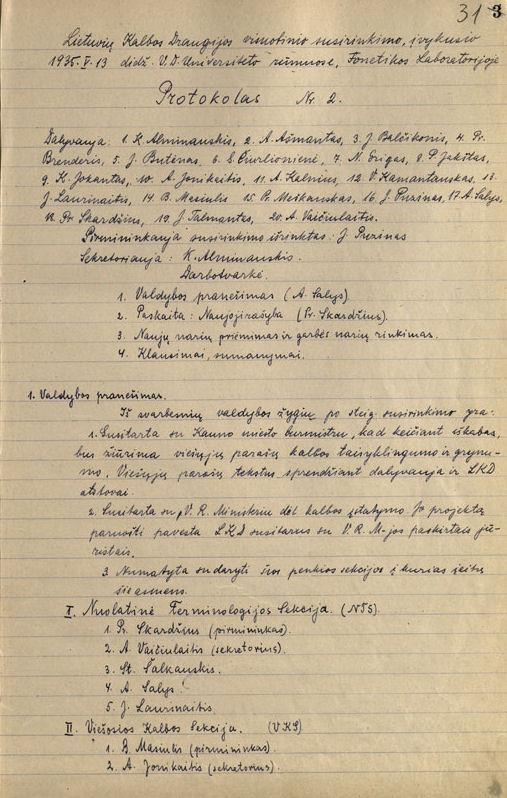 31 3
Lietuvių Kalbos Draugijos visuotinio susirinkimo, įvykusio
1935.V.13 didž. V.D. Universiteto rūmuose, Fonetikos Laboratorijoje
Protokolas Nr. 2.
Dalyvauja: 1. K. Alminauskis, 2. A. Ašmantas, 3. J. Balčikonis, 4. Pr.
Brenderis, 5. J. Butėnas, 6. S. Čiurlionienė, 7. N. Grigas, 8. P. Jakštas,
9. K. Jokantas, 10. A. Jonikaitis, 11. A. Kalnius, 12. V. Kamantauskas, 13.
J. Laurinaitis, 14. B. Masiulis 15. Pr. Meškauskas, 16. J. Puzinas, 17. A. Salys,
18. Pr. Skardžius, 19. J. Talmantas, 20. A. Vaičiulaitis.
Pirmininkauja susirinkimo išrinktas: J. Puzinas
Sekretoriauja: K. Alminauskis.
Darbotvarkė.
1. Valdybos pranešimas (A. Salys)
2. Paskaita: Naujoji rašyba (Pr. Skardžius).
3. Naujų narių priėmimas ir garbės narių rinkimas.
4. Klausimai, sumanymai.
1. Valdybos pranešimas.
Iš svarbesnių valdybos žygių po steig. susirinkimo yra:
1. Susitarta su Kauno miesto burmistru, kad keičiant iškabas,
bus žiūrima viešųjų parašų kalbos taisyklingumo ir grynu-
mo. Viešųjų parašų tekstus sprendžiant dalyvauja ir LKD
atstovai.
2. Susitarta su V. R. Ministeriu dėl kalbos įstatymo. Jo projektą
paruošti pavesta LKD susitarus su V. R. M-jos paskirtais ju-
ristais.
3. Numatyta sudaryti šios penkios sekcijos į kurias įeitų
šie asmens.
I. Nuolatinė Terminologijos Sekcija. (NTS)
1. Pr. Skardžius (pirmininkas).
2. A. Vaičiulaitis (sekretorius).
3. St. Šalkauskis.
4. A. Salys.
5. J. Laurinaitis.
II. Viešosios Kalbos Sekcija. (VKS)
1. B. Masiulis (pirmininkas)
2. A. Jonikaitis (sekretorius).